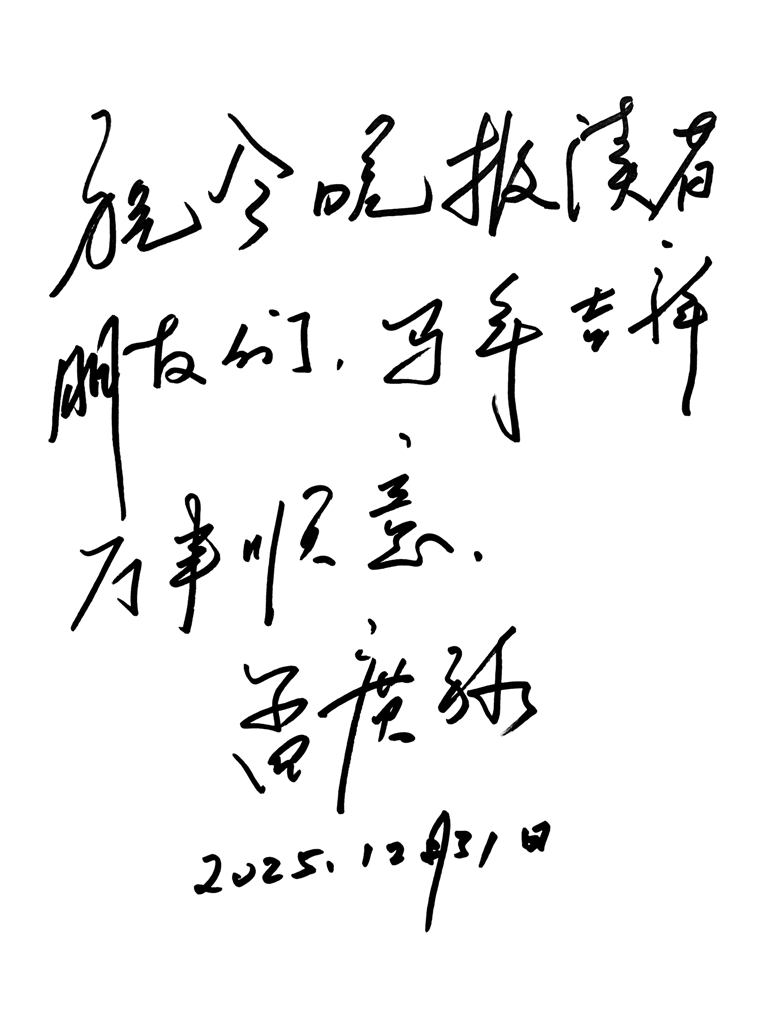 祝今晚报读者
朋友们,马年吉祥
万事顺意.
廣
2025.12月31日